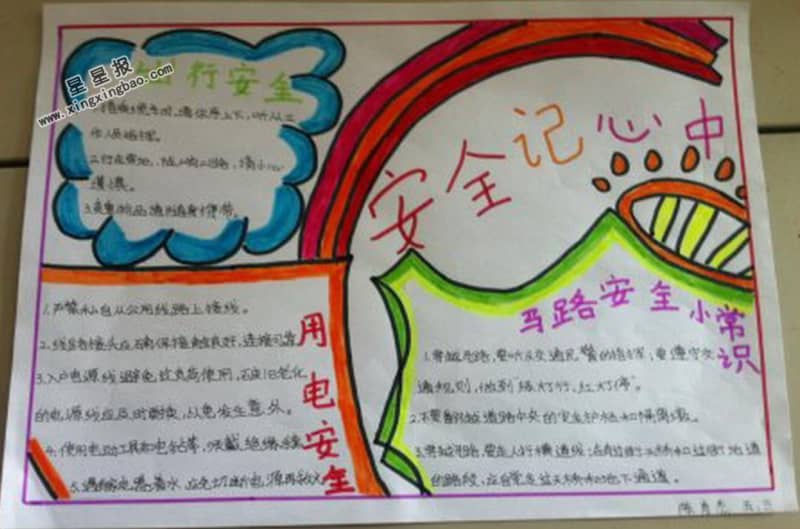 星星报
www.xingxingbao.com
出行安全
安全记心中
2.行在窄地、
3.贵重物品请随身携带。
用电安全
1.严禁私自从公用线路上接线。
2.线路接头应确保接触良好,连接可靠
3.入户电源线避免超负荷使用,破旧老化
的电源线应及时更换,以免发生意外。
4.使用电动工具和电钻等,须戴绝缘手套
5.遇到家电器着火,应先切断电源再救火
马路安全小常识
1.穿越马路,要听从交通民警的指挥;要遵守交
通规则,做到"绿灯行,红灯停"。
2.不要翻越道路中央的安全护栏和隔离墩。
3.穿越马路,要走人行横道线;在有过街天桥和过街地道
的路段,应自觉走过天桥和地下通道。